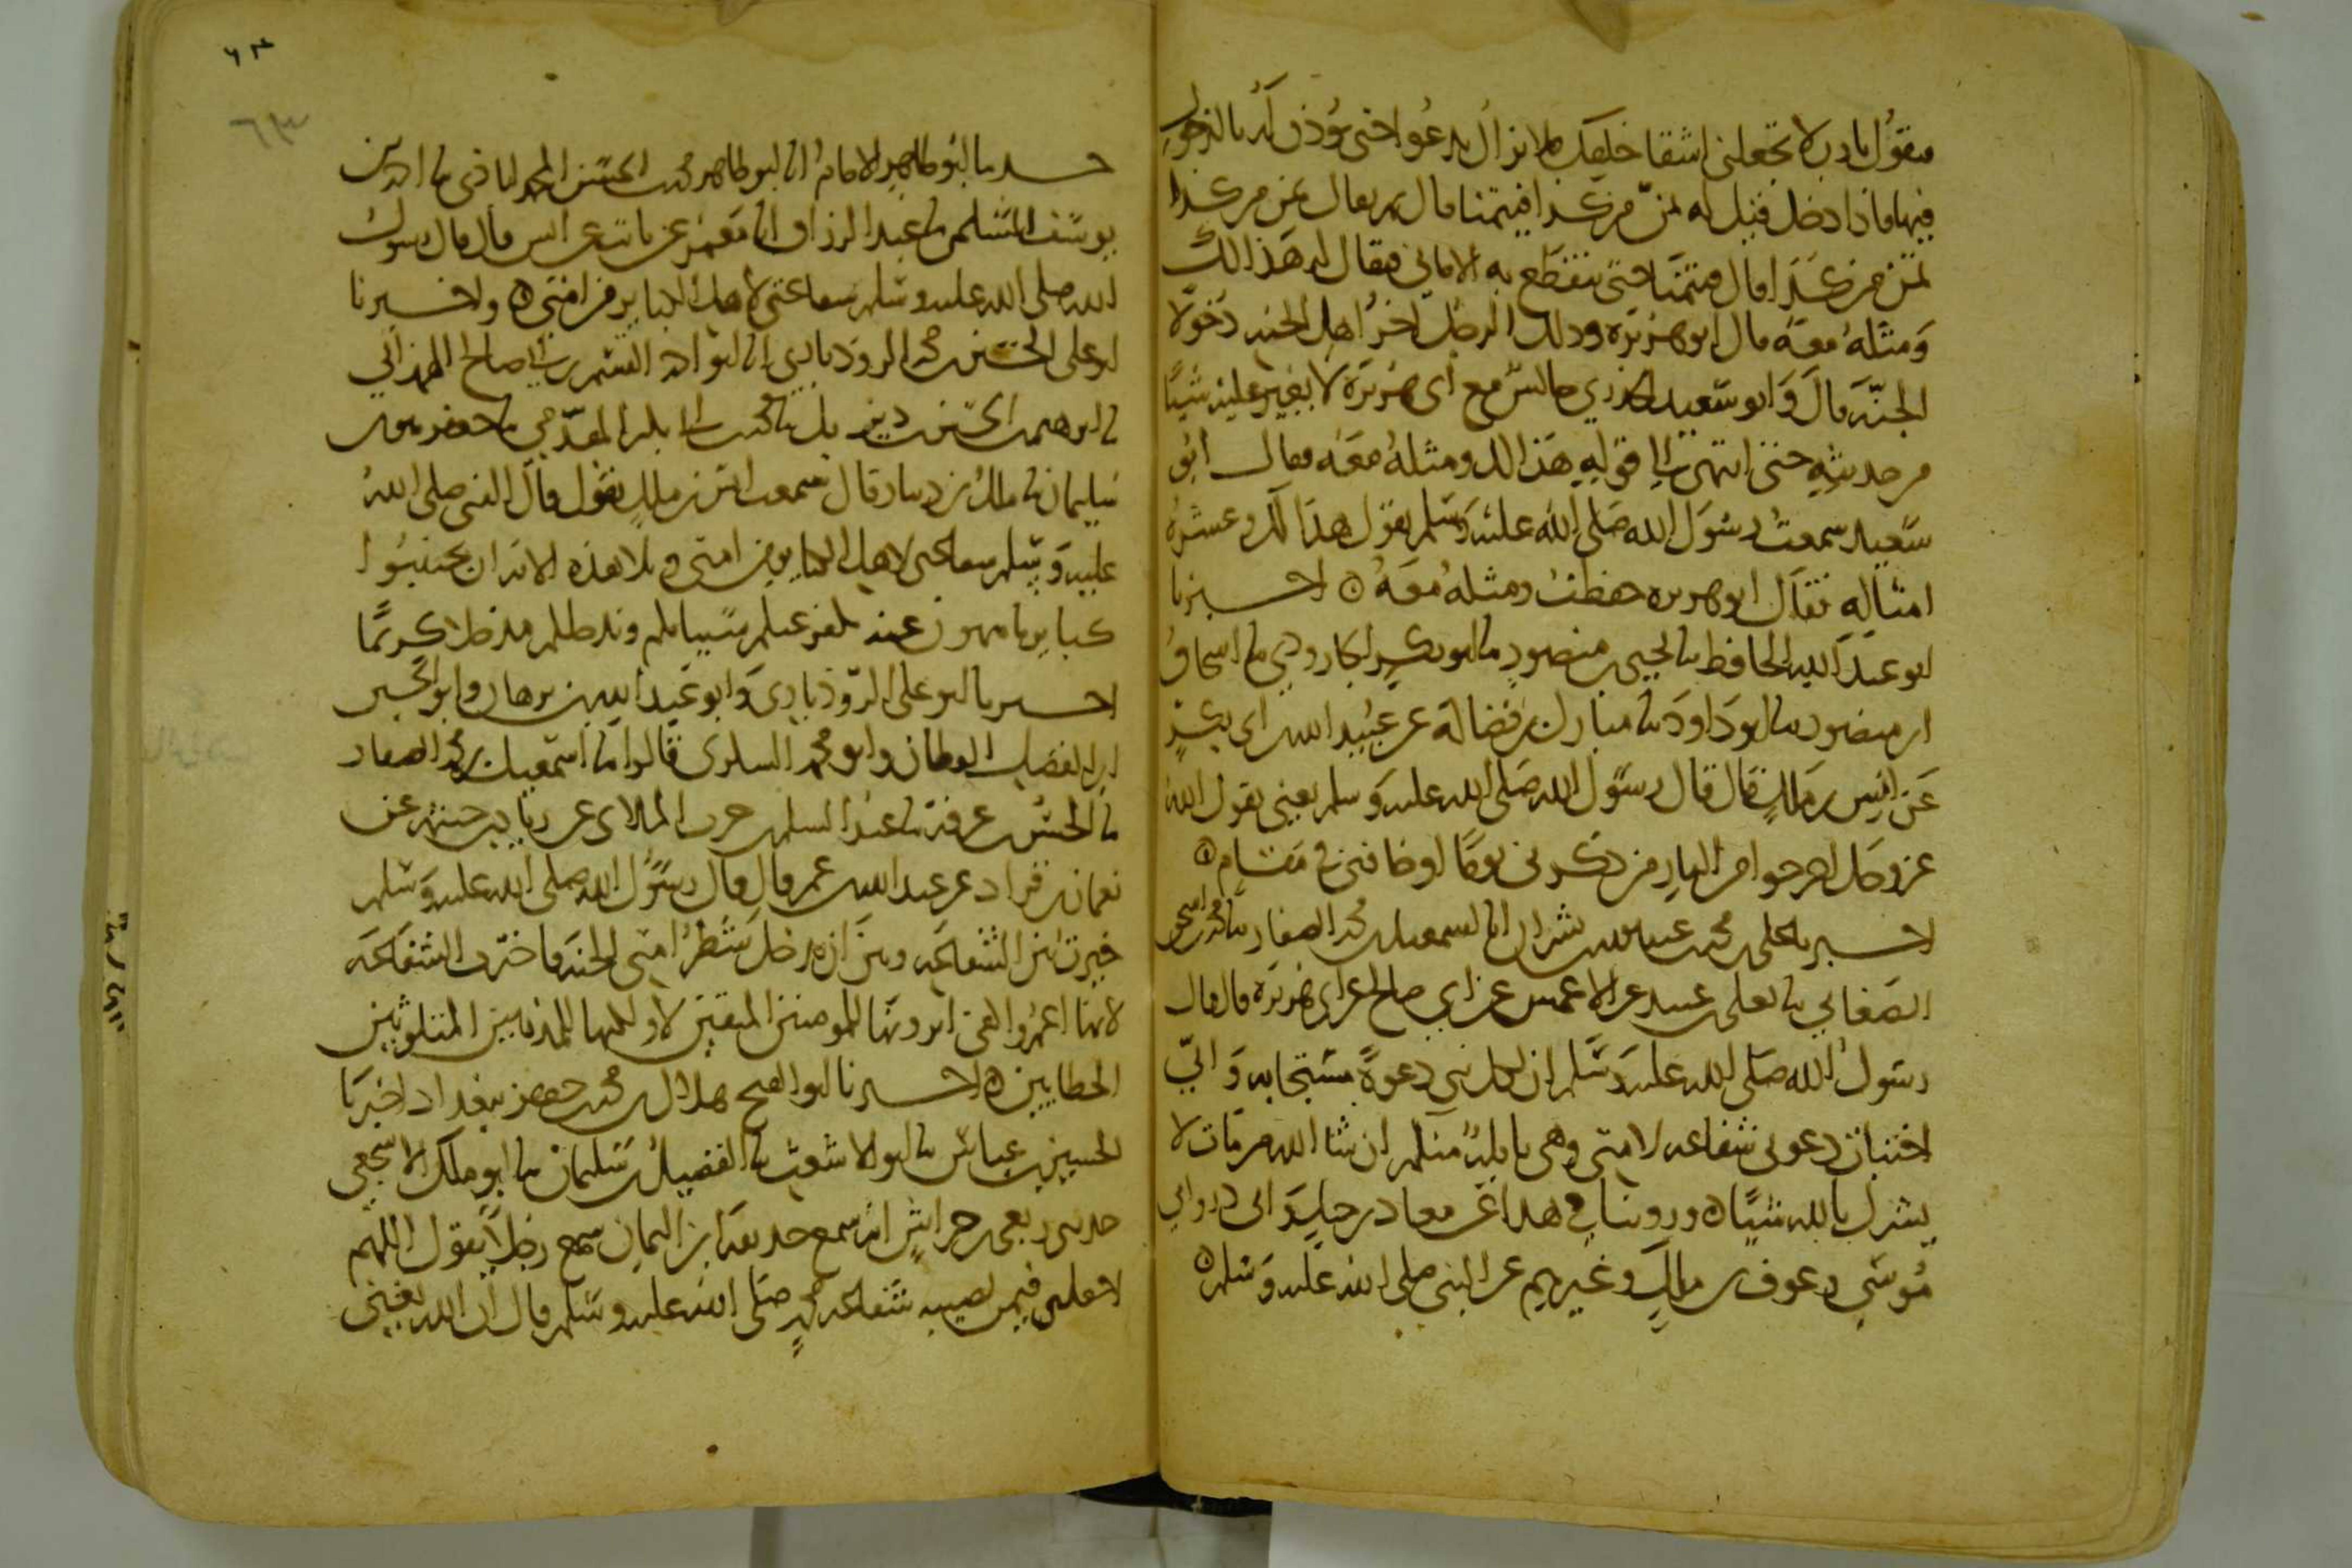 فيقول يا رب لا تجعلني اشقا خلقك فلا يزال يدعوا حتى يؤذن له بالدخول
فيها فاذا دخل قيل له تمن من كذا فيتمنا قال ثم يقال تمن من كذا
تمن من كذا قال فيتمنا حتى تنقطع به الاماني فيقال له هذا لك
ومثله معه قال ابو هريرة وذلك الرجل اخر اهل الجنة دخولا
الجنة قال وابو سعيد الخدري جالس مع ابي هريرة لا يغير عليه شيئا
من حديثه حتى انتهى الى قوله هذا لك ومثله معه فقال ابو
سعيد سمعت رسول الله صلى الله عليه وسلم يقول هذا لك وعشرة
امثاله فقال ابو هريرة حفظت ومثله معه ه اخبرنا
ابو عبد الله الحافظ نا يحيى بن منصور نا ابو بكر الجارودي نا اسحاق
ابن منصور نا ابو داود نا مبارك بن فضالة عن عبيد الله بن ابي بكر
عن انس بن مالك قال قال رسول الله صلى الله عليه وسلم يعني يقول الله
عز وجل اخرجوا من النار من ذكرني يوما او خافني في مقام ه
اخبرنا علي بن محمد بن عبد الله بن بشران انا اسمعيل بن محمد الصفار نا محمد بن اسحق
الصغاني نا يعلى بن عبيد عن الاعمش عن ابي صالح عن ابي هريرة قال قال
رسول الله صلى الله عليه وسلم ان لكل نبي دعوة مستجابه واني
اختبات دعوتي شفاعة لامتي وهي نايلة منكم ان شا الله من مات لا
يشرك بالله شيئا ه وروينا في هذا عن معاذ بن جبل وابي ذر وابي
موسى وعوف بن مالك وغيرهم عن النبي صلى الله عليه وسلم ه
٦٣
٦٣
حدثنا ابو طاهر الامام انا ابو طاهر محمد بن الحسن المحمداباذي نا احمد بن
يوسف السلمي نا عبد الرزاق انا معمر عن ثابت عن انس قال قال رسول
الله صلى الله عليه وسلم شفاعتي لاهل الكباير من امتي ه واخبرنا
ابو علي الحسين بن محمد الروذباري انا ابو احمد القسم بن ابي صالح الهمذاني
نا ابرهيم بن الحسين بن ديزيل نا محمد بن ابي بكر المقدمي نا جعفر بن
سليمان نا ملك بن دينار قال سمعت انس بن ملك يقول قال النبي صلى الله
عليه وسلم شفاعتي لاهل الكباير من امتي وتلا هذه الاية ان تجتنبوا
كباير ما تنهون عنه نكفر عنكم سيياتكم وندخلكم مدخلا كريما
اخبرنا ابو علي الروذباري وابو عبد الله بن برهان وابو الحسين
ابن الفضل القطان وابو محمد السكري قالوا نا اسمعيل بن محمد الصفار
نا الحسن بن عرفة نا عبد السلم بن حرب الملاي عن زياد بن خيثمة عن
نعمان بن قراد عن عبد الله بن عمر قال قال رسول الله صلى الله عليه وسلم
خيرت بين الشفاعة وبين ان يدخل شطر امتي الجنة فاخترت الشفاعة
لانها اعم واكفى اترونها للمومنين المتقين لا ولكنها للمذنبين المتلوثين
الخطايين ه اخبرنا ابو الفتح هلال بن محمد بن جعفر ببغداد اخبرنا
الحسين بن عياش نا ابو الاشعث نا الفضيل بن سليمان نا ابو ملك الاشجعي
حدثني ربعي بن حراش انه سمع حذيفة بن اليمان سمع رجلا يقول اللهم
اجعلني فيمن تصيبه شفاعة محمد صلى الله عليه وسلم قال ان الله يغني